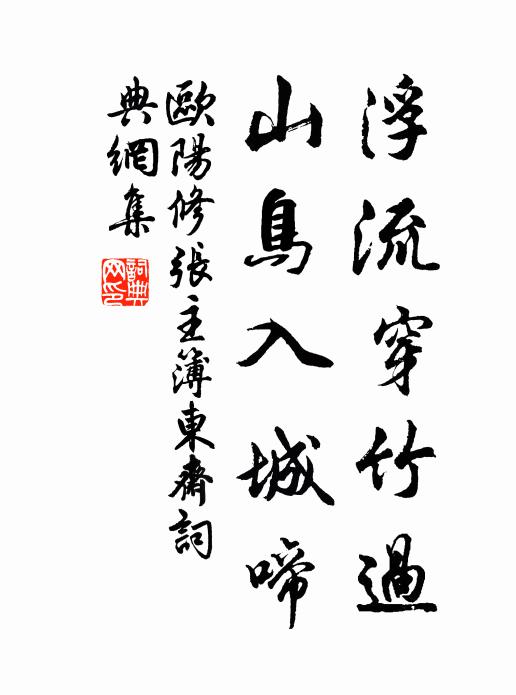 浮流穿竹過
山鳥入城啼
歐陽修張主簿東齋詞
典網集
詞典
网印